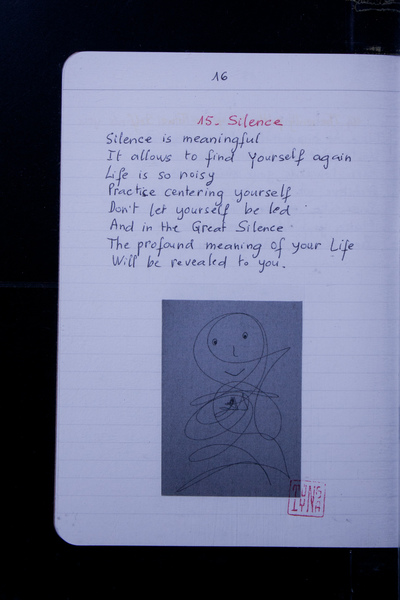 16
15. Silence
Silence is meaningful
It allows to find yourself again
Life is so noisy
Practice centering yourself
Don't let yourself be led
And in the Great Silence
The profound meaning of your Life
Will be revealed to you.